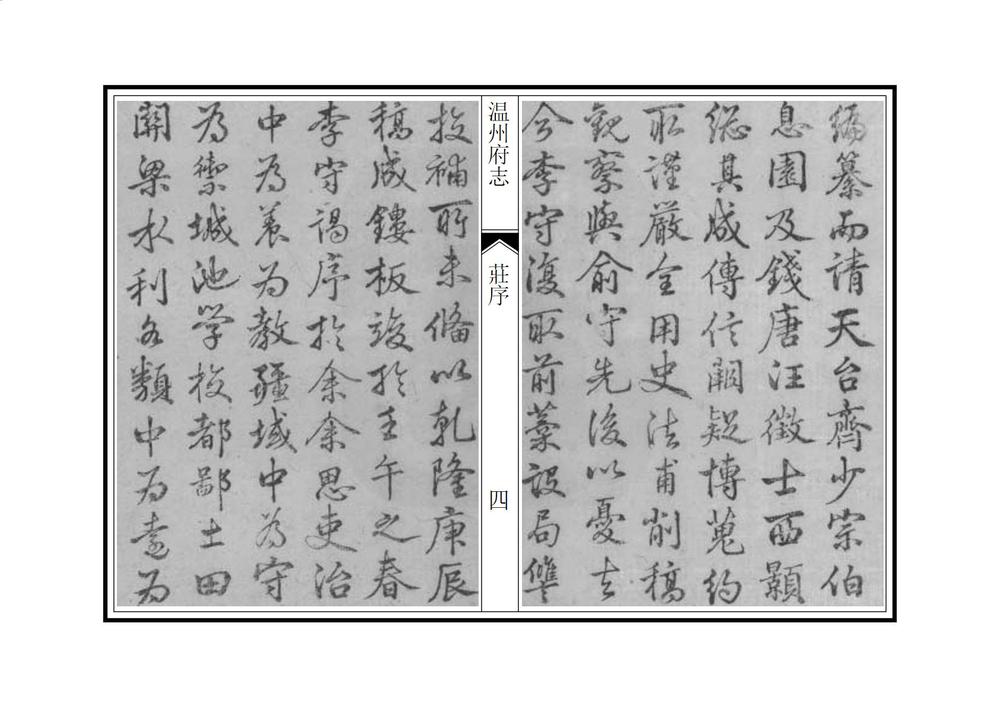 編纂而請天台齊少宗伯
息園及錢唐汪徵士西顥
總其成傳信闕疑博蒐約
取謹嚴全用史法甫削稿
觀察與俞守先後以憂去
今李守復取前藁設局讎
温州府志
莊序
四
挍補所未備以乾隆庚辰
稿成鏤板竣於壬午之春
李守謁序於余余思吏治
中為養為教疆域中為守
為禦城池學挍都鄙土田
關梁水利各類中為為